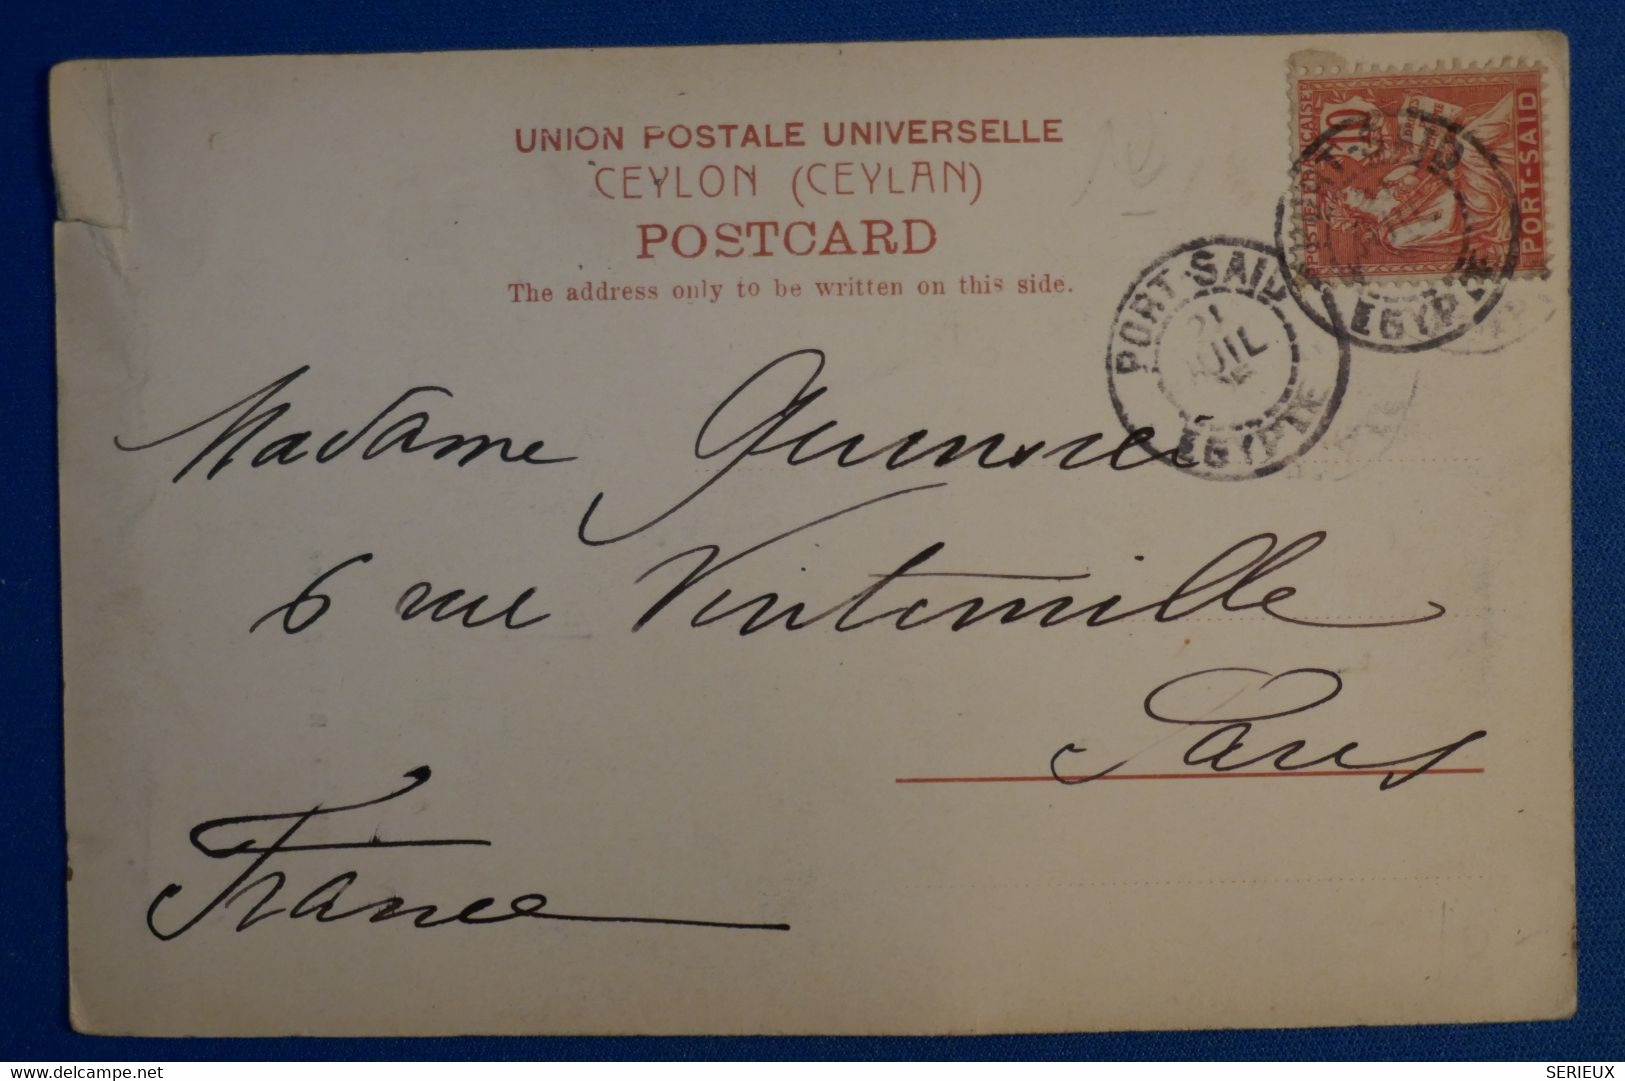 UNION POSTALE UNIVERSELLE
CEYLON (CEYLAN)
POSTCARD
The address only to be written on this side.
POSTE FRANÇAISE
10
PORT-SAID
PORT-SAID
EGYPTE
PORT SAID
21
JUIL
EGYPTE
Madame
6 rue Vintimille
Paris
France
delcampe.net
SERIEUX